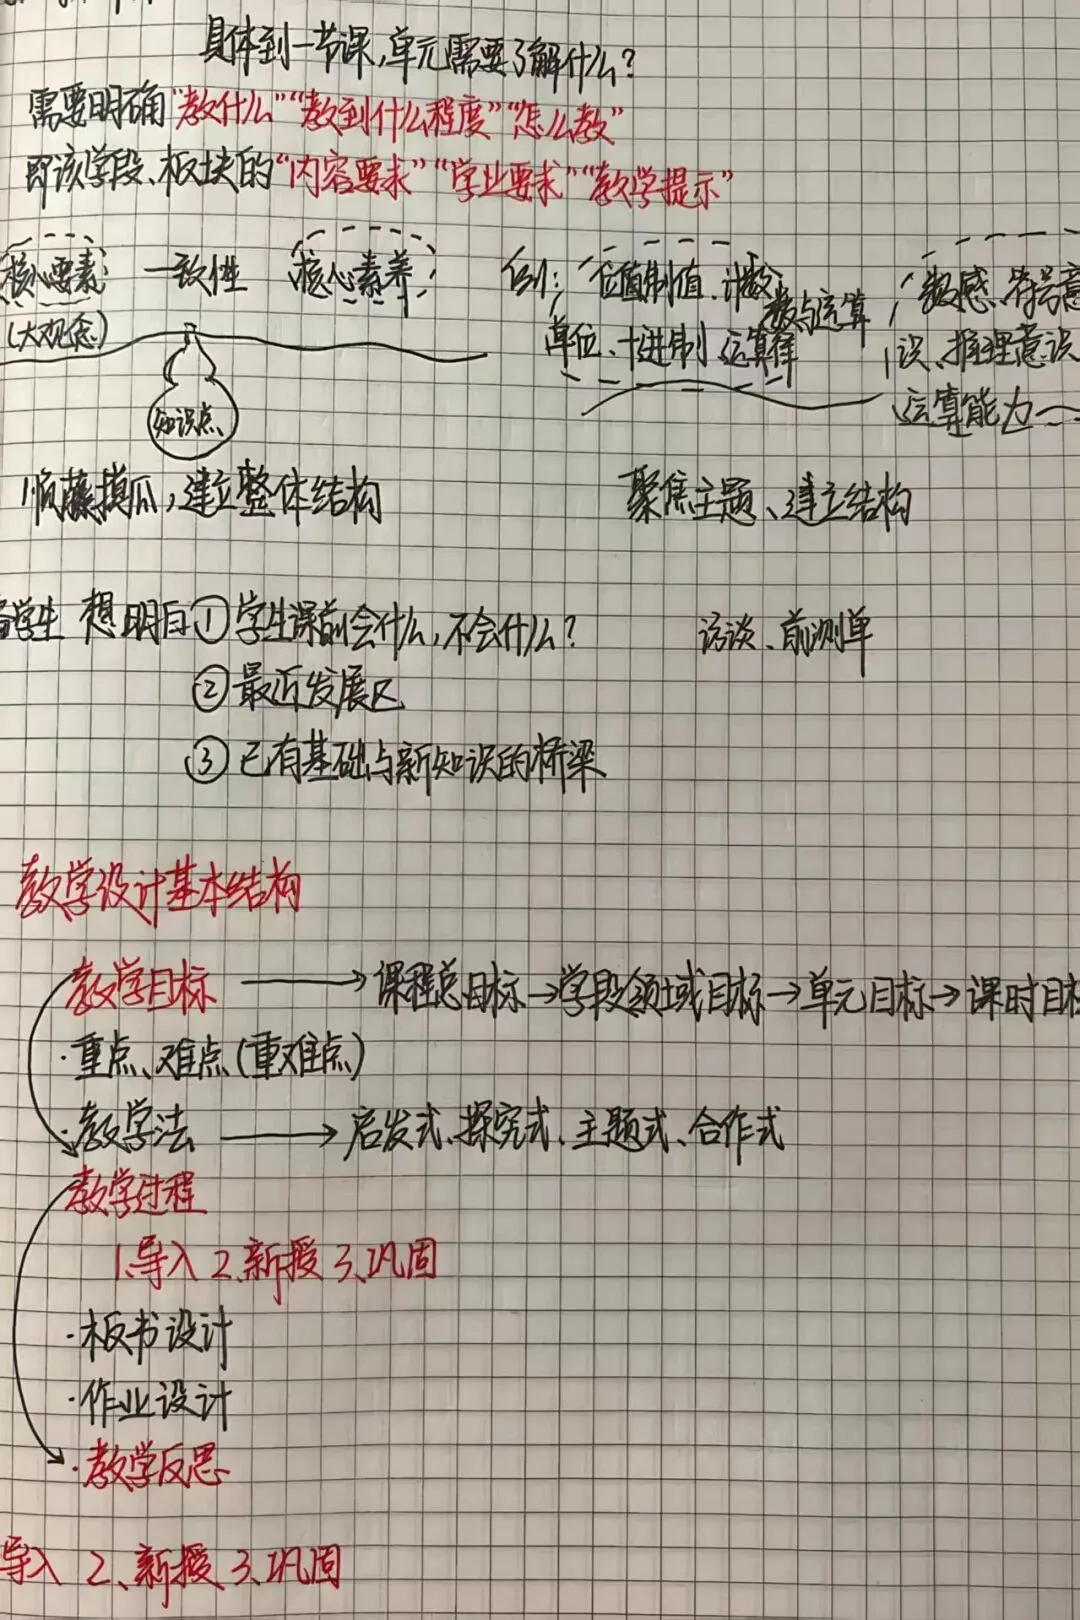 具体到一节课,单元需要了解什么?
需要明确"教什么""教到什么程度""怎么教"
即该学段、板块的"内容要求""学业要求""教学提示"
核心要素 一致性 核心素养 例: 位值制值、计数 数与运算 数感、符号意
(大观念) 单位、十进制 运算律 识、推理意识
知识点 运算能力
顺藤摸瓜,建立整体结构 聚焦主题、建立结构
学生 想明白①学生课前会什么,不会什么? 访谈、前测单
②最近发展区
③已有基础与新知识的桥梁
教学设计基本结构
教学目标 → 课程总目标→学段领域目标→单元目标→课时目标
·重点、难点(重难点)
·教学法 → 启发式、探究式、主题式、合作式
教学过程
1.导入 2、新授 3、巩固
·板书设计
·作业设计
·教学反思
导入 2、新授 3、巩固